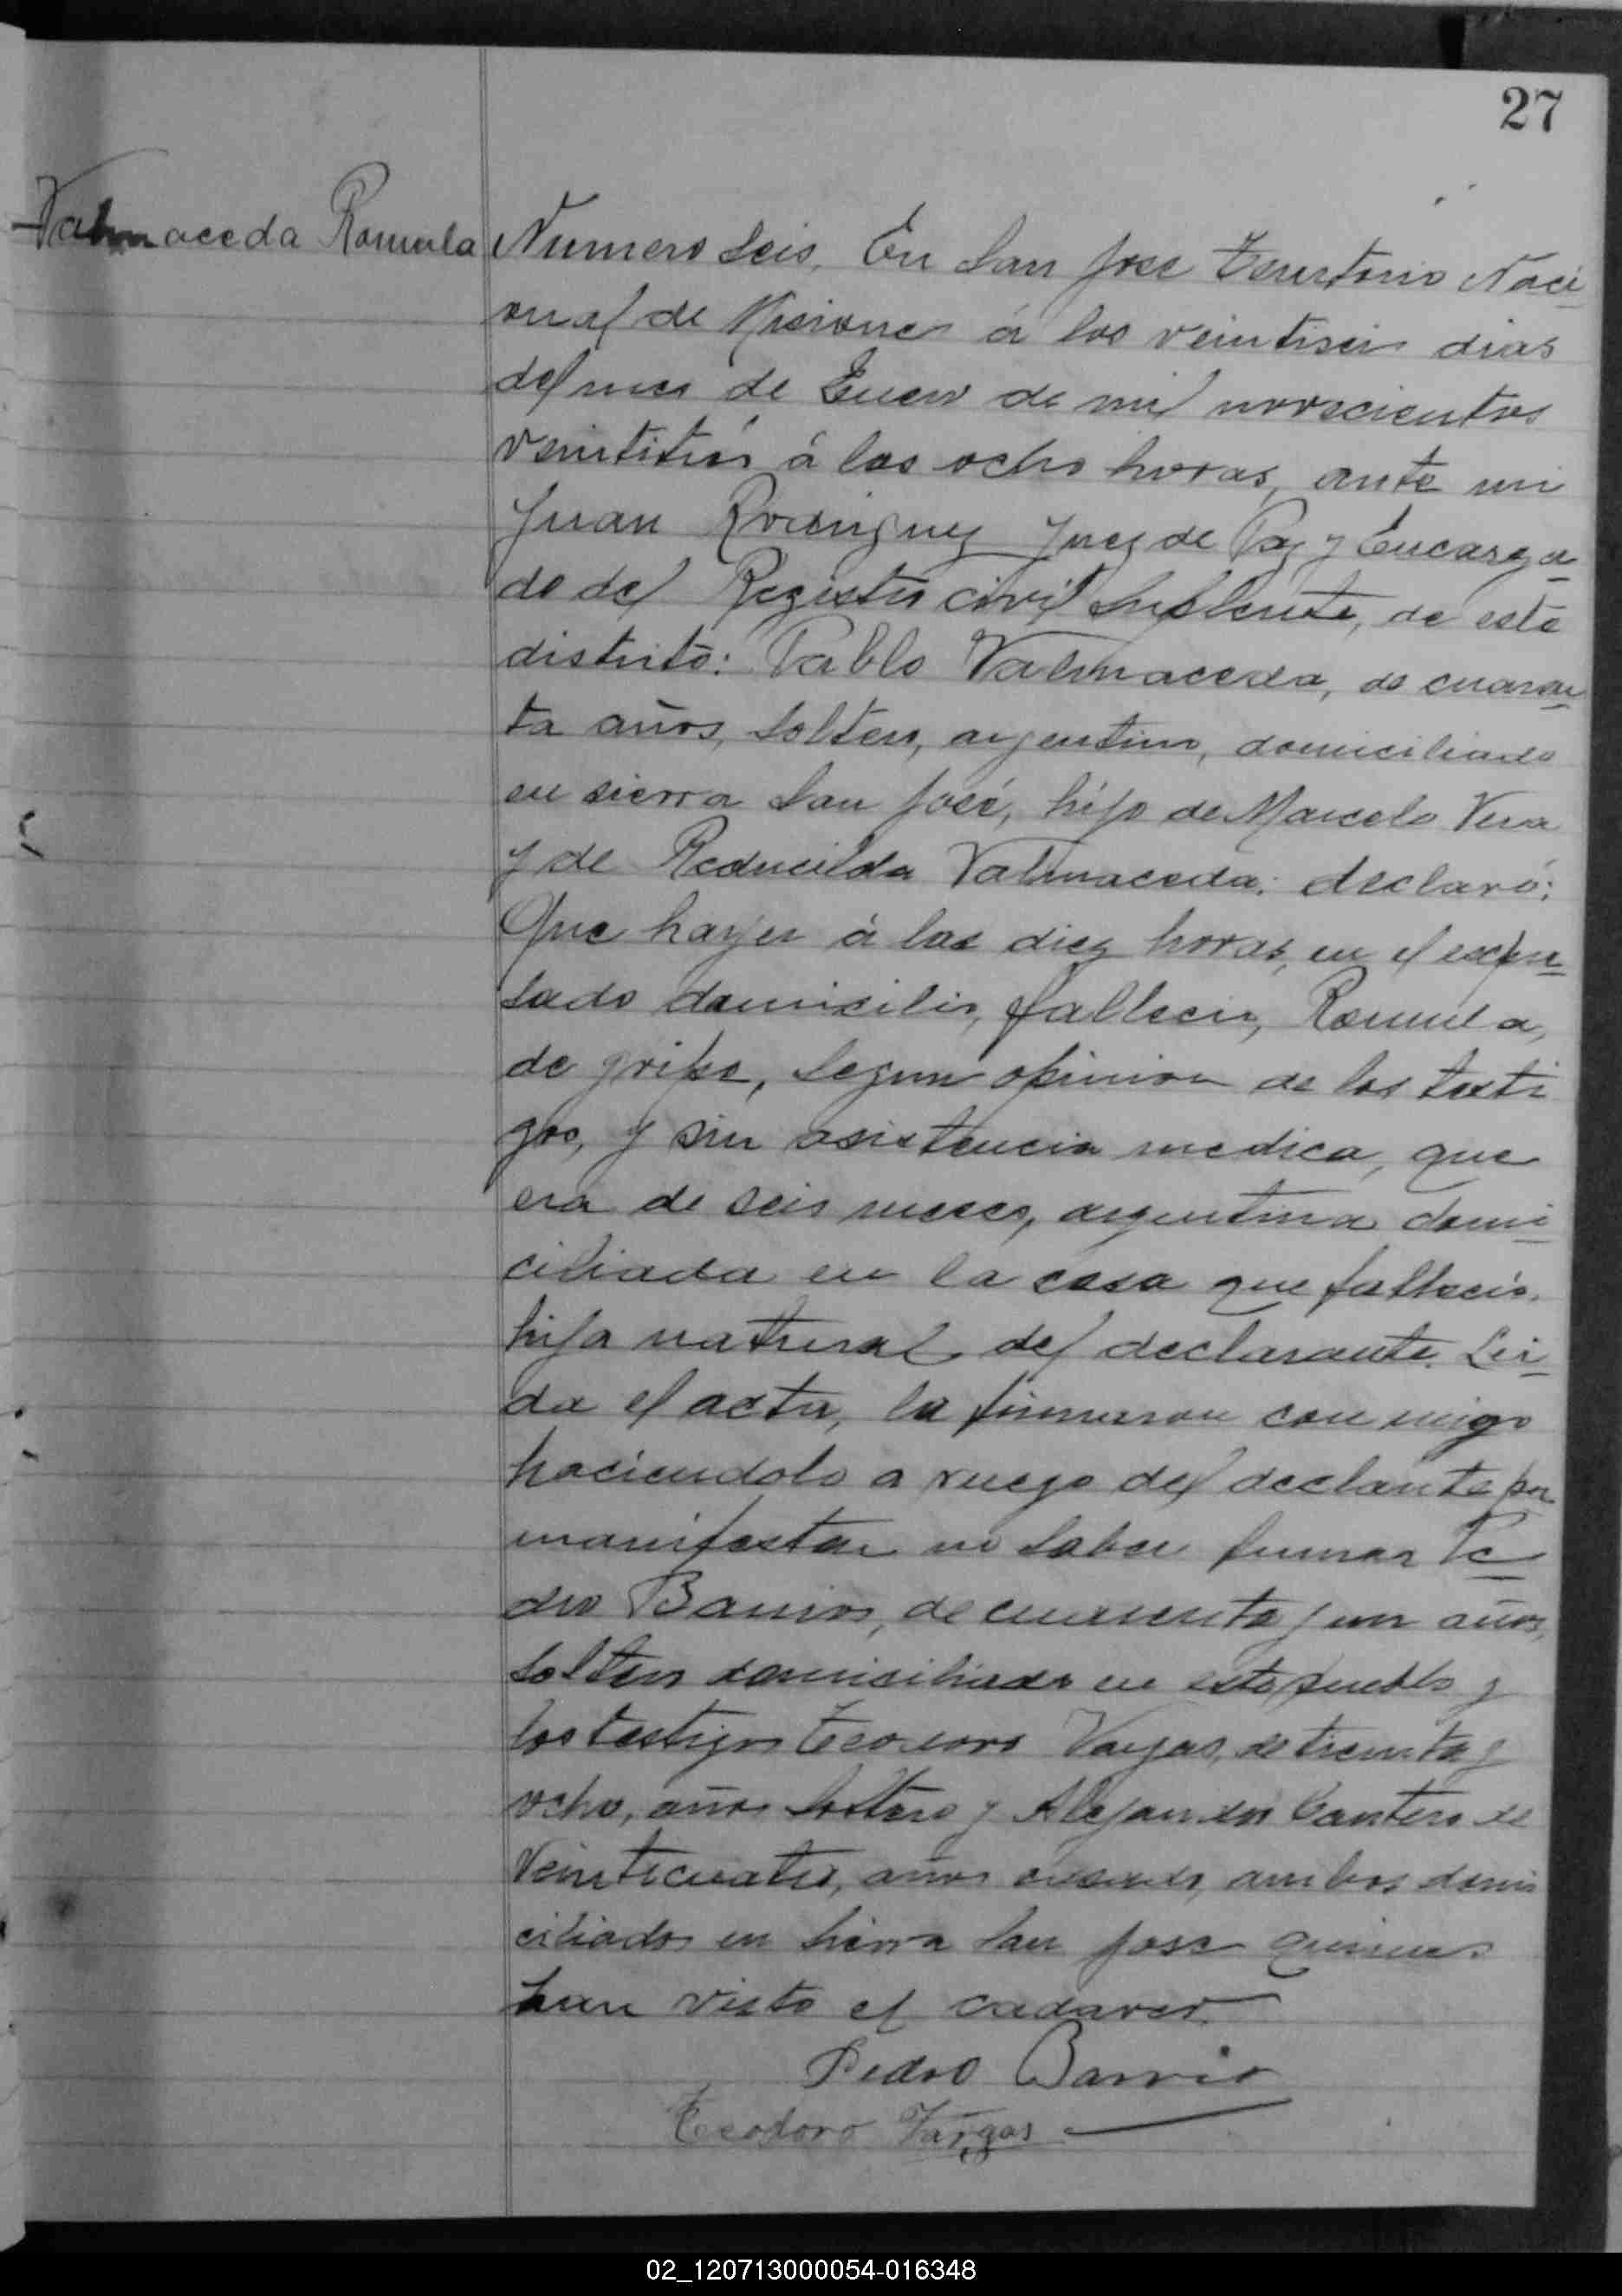 27
Valmaceda Romula
Numero seis. En San Jose Territorio Naci
onal de Misiones á los veintiseis dias
del mes de Enero de mil novecientos
veintitres á las ocho horas, ante mi
Juan Rodriguez Juez de Paz y Encarga
do del Registro civil Suplente, de este
distrito: Pablo Valmaceda, de cuaren
ta años, soltero, argentino, domiciliado
en sierra San José, hijo de Marcelo Vera
y de Valmaceda: declaró:
Que hayer á las diez horas, en el expre
sado domicilio, fallecio, Romula,
de gripe, segun opinion de los testi
gos, y sin asistencia medica, que
era de seis meses, argentina domi
ciliada en la casa que fallecio.
hija natural del declarante. Lei
da el acta, la firmaron con migo
haciendolo a ruego del declante por
manifestar no saber firmar Pe
dro Barrios, de cuarenta y un años,
soltero domiciliado en este pueblo y
los testigos Teodoro Vargas, de treinta y
ocho, años soltero y Alejandro Cantero de
veinticuatro, años casado, ambos domi
ciliados en sierra San Jose quienes
han visto el cadaver
Pedro Barrio
Teodoro Vargas
02_120713000054-016348